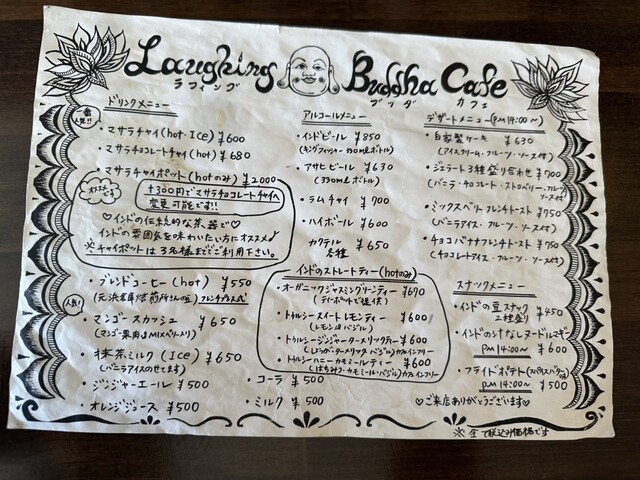 Laughing Buddha Cafe
ラフィング ブッダ カフェ
ドリンクメニュー
一番人気!!
・マサラチャイ(hot・Ice) ¥600
・マサラチョコレートチャイ(hot) ¥680
・マサラチャイポット(hotのみ) ¥2000
オススメ
+300円でマサラチョコレートチャイへ
変更可能です!!
♡インドの伝統的な茶器で♡
インドの雰囲気を味わいたい方にオススメ♪
※チャイポットは3名様まででご利用下さい。
・ブレンドコーヒー(hot) ¥550
フレンチプレス式
人気!
・マンゴースカッシュ ¥650
(マンゴー果肉&MIXベリー入り)
・抹茶ミルク(Ice) ¥650
(バニラアイスのせてます)
・ジンジャーエール ¥500
・オレンジジュース ¥500
・コーラ ¥500
・ミルク ¥500
アルコールメニュー
・インドビール ¥850
(キングフィッシャー330mlボトル)
・アサヒビール ¥630
(330mlボトル)
・ラムチャイ ¥700
・ハイボール ¥600
・カクテル各種 ¥650
インドのストレートティー(hotのみ)
・オーガニックジャスミングリーンティー ¥670
(ティーポットで提供)
・トゥルシースイートレモンティー ¥600
(レモン&バジル)
・トゥルシージンジャーターメリックティー ¥600
(しょうが・ターメリック・バジル)カフェインフリー
・トゥルシーハニーカモミールティー ¥600
(はちみつ・カモミール・バジル)カフェインフリー
デザートメニュー(PM 14:00〜)
・自家製ケーキ ¥630
(アイスクリーム・フルーツ・ソース付)
・ジェラート3種盛り合わせ ¥700
(バニラ・チョコレート・ストロベリー・フルーツ
ソース付)
・ミックスベリーフレンチトースト ¥750
(バニラアイス・フルーツ・ソース付)
・チョコバナナフレンチトースト ¥750
(チョコレートアイス・フルーツ・ソース付)
スナックメニュー
・インドの豆スナック
2種盛り ¥450
・インドの汁なしヌードルマギー
PM 14:00〜 ¥600
・フライドポテト(スパイスソルト味)
PM 14:00〜 ¥500
♡ご来店ありがとうございます♡
※全て税込み価格です